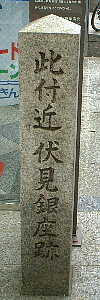 此付近伏見銀座跡